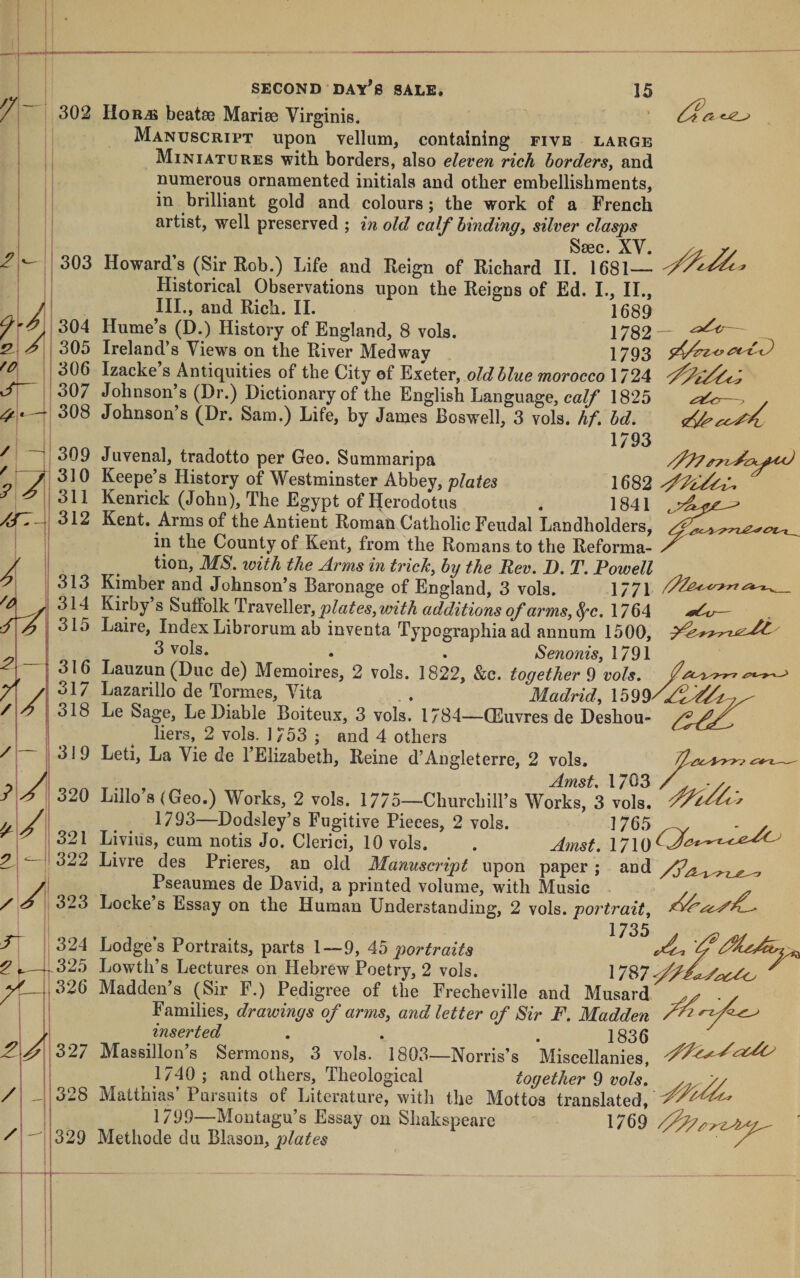 SECOND DAY'S SALE. 15
302 HORÆ beatæ Mariæ Virginis.
MANUSCRIPT upon vellum, containing FIVE LARGE
MINIATURES with borders, also eleven rich borders, and
numerous ornamented initials and other embellishments,
in brilliant gold and colours; the work of a French
artist, well preserved ; in old calf binding, silver clasps
Sæc. XV.
303 Howard's (Sir Rob.) Life and Reign of Richard II. 1681—
Historical Observations upon the Reigns of Ed. I., II.,
III., and Rich. II. 1689
304 Hume's (D.) History of England, 8 vols. 1782
305 Ireland's Views on the River Medway 1793
306 Izacke's Antiquities of the City of Exeter, old blue morocco 1724
307 Johnson's (Dr.) Dictionary of the English Language, calf 1825
308 Johnson's (Dr. Sam.) Life, by James Boswell, 3 vols. hf. bd.
1793
309 Juvenal, tradotto per Geo. Summaripa
310 Keepe's History of Westminster Abbey, plates 1682
311 Kenrick (John), The Egypt of Herodotus . 1841
312 Kent. Arms of the Antient Roman Catholic Feudal Landholders,
in the County of Kent, from the Romans to the Reforma-
tion, MS. with the Arms in trick, by the Rev. D. T. Powell
313 Kimber and Johnson's Baronage of England, 3 vols. 1771
314 Kirby's Suffolk Traveller, plates, with additions of arms, &c. 1764
315 Laire, Index Librorum ab inventa Typographia ad annum 1500,
3 vols. . . Senonis, 1791
316 Lauzun (Duc de) Memoires, 2 vols. 1822, &c. together 9 vols.
317 Lazarillo de Tormes, Vita . . Madrid, 1599
318 Le Sage, Le Diable Boiteux, 3 vols. 1784—Œuvres de Deshou-
liers, 2 vols. 1753 ; and 4 others
319 Leti, La Vie de l'Elizabeth, Reine d'Angleterre, 2 vols.
Amst. 1703
320 Lillo's (Geo.) Works, 2 vols. 1775—Churchill's Works, 3 vols.
1793—Dodsley's Fugitive Pieces, 2 vols. 1765
321 Livius, cum notis Jo. Clerici, 10 vols. . Amst. 1710
322 Livre des Prieres, an old Manuscript upon paper ; and
Pseaumes de David, a printed volume, with Music
323 Locke's Essay on the Human Understanding, 2 vols. portrait,
1735
324 Lodge's Portraits, parts 1—9, 45 portraits
325 Lowth's Lectures on Hebrew Poetry, 2 vols. 1787
326 Madden's (Sir F.) Pedigree of the Frecheville and Musard
Families, drawings of arms, and letter of Sir F. Madden
inserted . . . 1836
327 Massillon's Sermons, 3 vols. 1803—Norris's Miscellanies,
1740 ; and others, Theological together 9 vols.
328 Matthias' Pursuits of Literature, with the Mottos translated,
1799—Montagu's Essay on Shakspeare 1769
329 Methode du Blason, plates